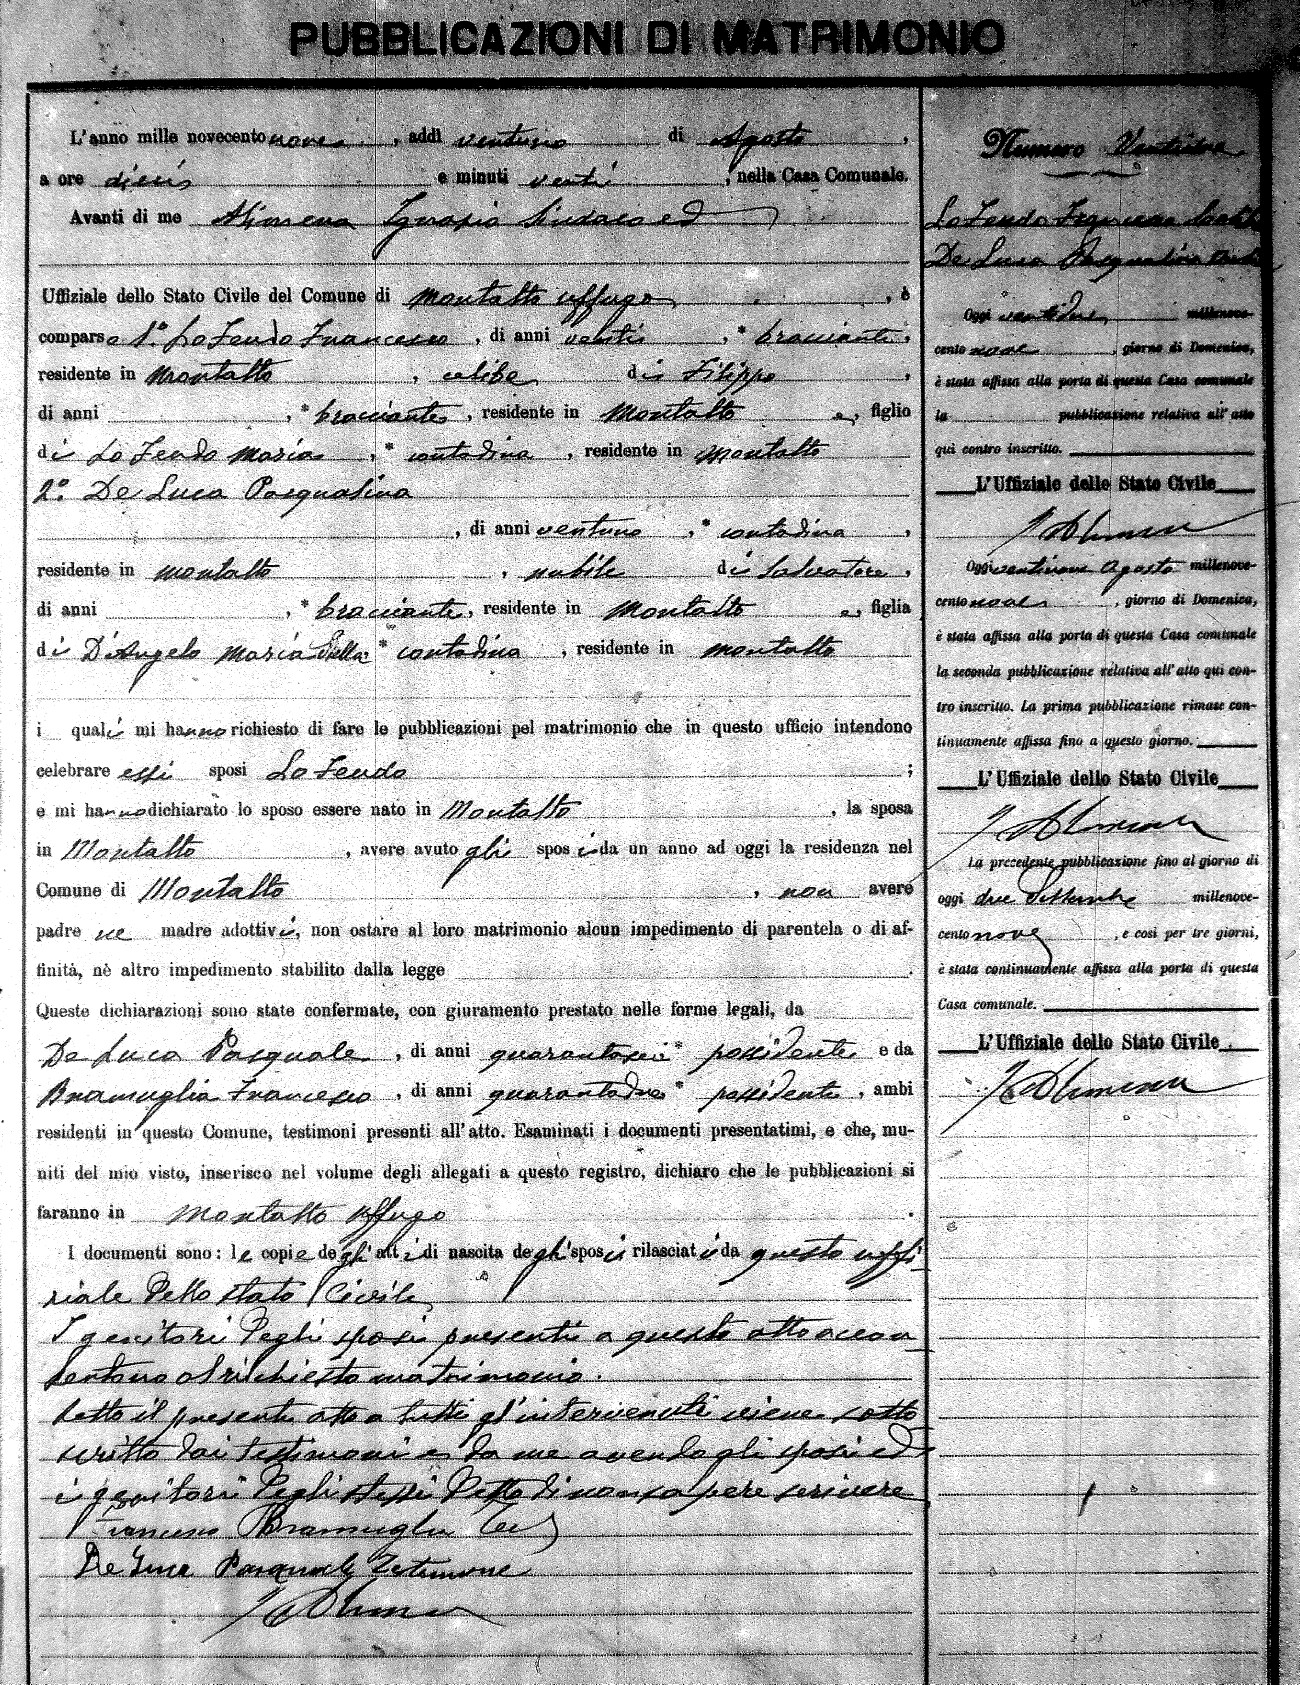 PUBBLICAZIONI DI MATRIMONIO
L'anno mille novecento nove, addì ventuno di Agosto,
a ore dieci e minuti venti, nella Casa Comunale.
Avanti di me Alimena Ignazio Sindaco ed
Uffiziale dello Stato Civile del Comune di Montalto Uffugo, è
comparso 1.° Lo Feudo Francesco, di anni venti, * bracciante,
residente in Montalto, celibe di Filippo,
di anni , * bracciante, residente in Montalto e, figlio
di Lo Feudo Maria, * contadina, residente in Montalto
2.° De Luca Pasqualina
, di anni ventuno, * contadina,
residente in Montalto, nubile di Salvatore,
di anni , * bracciante, residente in Montalto e, figlia
di D'Angelo Maria * contadina, residente in Montalto
i quali mi hanno richiesto di fare le pubblicazioni pel matrimonio che in questo ufficio intendono
celebrare essi sposi Lo Feudo ;
e mi hanno dichiarato lo sposo essere nato in Montalto, la sposa
in Montalto, avere avuto gli sposi da un anno ad oggi la residenza nel
Comune di Montalto, non avere
padre ne madre adottivi, non ostare al loro matrimonio alcun impedimento di parentela o di af-
finità, nè altro impedimento stabilito dalla legge .
Queste dichiarazioni sono state confermate, con giuramento prestato nelle forme legali, da
De Luca Pasquale, di anni quarantasei * possidente e da
Bramuglia Francesco, di anni quarantadue * possidente, ambi
residenti in questo Comune, testimoni presenti all'atto. Esaminati i documenti presentatimi, e che, mu-
niti del mio visto, inserisco nel volume degli allegati a questo registro, dichiaro che le pubblicazioni si
faranno in Montalto Uffugo .
I documenti sono: le copie degli atti di nascita degli sposi rilasciati da questo uffi-
ziale dello stato Civile
I genitori degli sposi presenti a questo atto accon
sentono al richiesto matrimonio.
Letto il presente atto a tutti gl'intervenuti viene sotto
scritto dai testimoni e da me avendo gli sposi ed
i genitori degli stessi detto di non sapere scrivere
Francesco Bramuglia
De Luca Pasquale Testimone
I Alimena
Numero Ventidue
Lo Feudo Francesco
De Luca Pasqualina
Oggi ventidue millenove-
cento nove, giorno di Domenica,
è stata affissa alla porta di questa Casa comunale
la pubblicazione relativa all'atto
qui contro inscritto.
L'Uffiziale dello Stato Civile
I Alimena
Oggi ventinove Agosto millenove-
cento nove, giorno di Domenica,
è stata affissa alla porta di questa Casa comunale
la seconda pubblicazione relativa all'atto qui con-
tro inscritto. La prima pubblicazione rimase con-
tinuamente affissa fino a questo giorno.
L'Uffiziale dello Stato Civile
I Alimena
La precedente pubblicazione fino al giorno di
oggi due Settembre millenove-
cento nove, e così per tre giorni,
è stata continuamente affissa alla porta di questa
Casa comunale.
L'Uffiziale dello Stato Civile
I Alimena